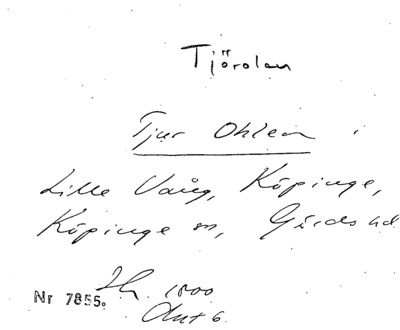 Tjörolan
Tjur Ohlen i
Lille Vång, Köpinge,
Köpinge sn, Gärds hd
1800
Nr 7855.
Akt 6.